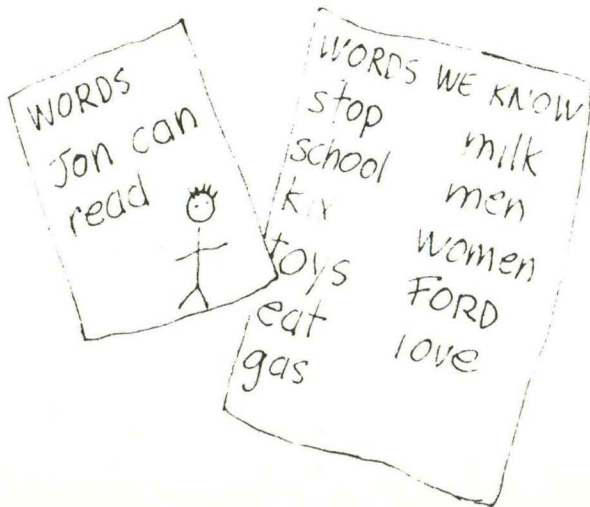 WORDS
Jon can
read
WORDS WE KNOW
stop
school
kix
toys
eat
gas
milk
men
women
FORD
love